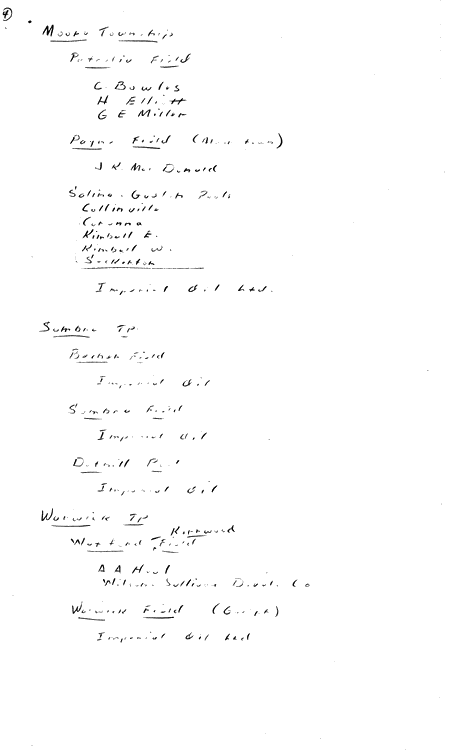 4
Moore Township
Petrolia Field
C. Bowles
H Elliott
G E Miller
Payne Field
J K Mac Donald
Salina - Guelph Pools
Collinville
Corunna
Kimball E.
Kimball W.
Imperial Oil Ltd.
Sombra TP.
Becher Field
Imperial Oil
Sombra Field
Imperial Oil
Pool
Imperial Oil
Warwick TP
Kirkwood
Watford - Field
A A
William Sullivan Devel. Co
Warwick Field (Guelph)
Imperial Oil Ltd